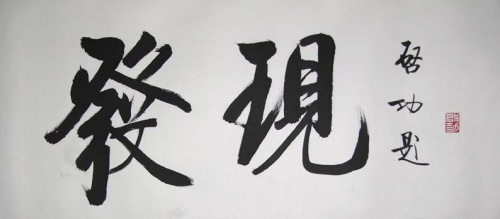 發現
啓功題